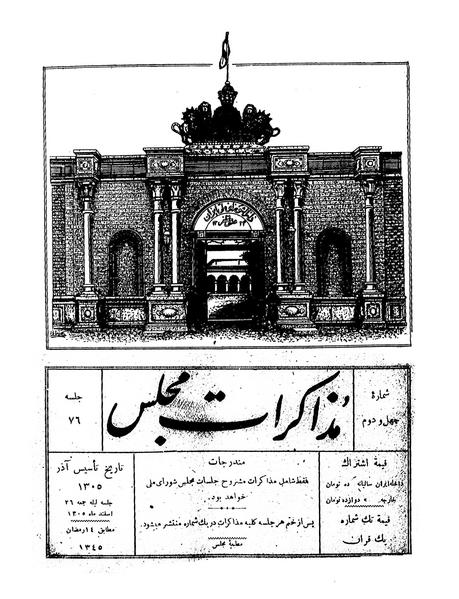 مذاکرات مجلس
شمارهٔ
چهل و دوم
جلسه
۷۶
قیمة اشتراك
داخله ایران سالیانه ده تومان
خارجه » دوازده تومان
قیمة تك شماره
یك قران
مندرجات
فقط شامل مذاکرات مشروح جلسات مجلس شورای ملی
خواهد بود.
پس از ختم هر جلسه کلیه مذاکرات در یك شماره منتشر میشود.
مطبعهٔ مجلس
تاریخ تأسیس آذر
۱۳۰۵
جلسه لیله جمعه ۲۶
اسفند ماه ۱۳۰۵
مطابق ۱۴ رمضان
۱۳۴۵